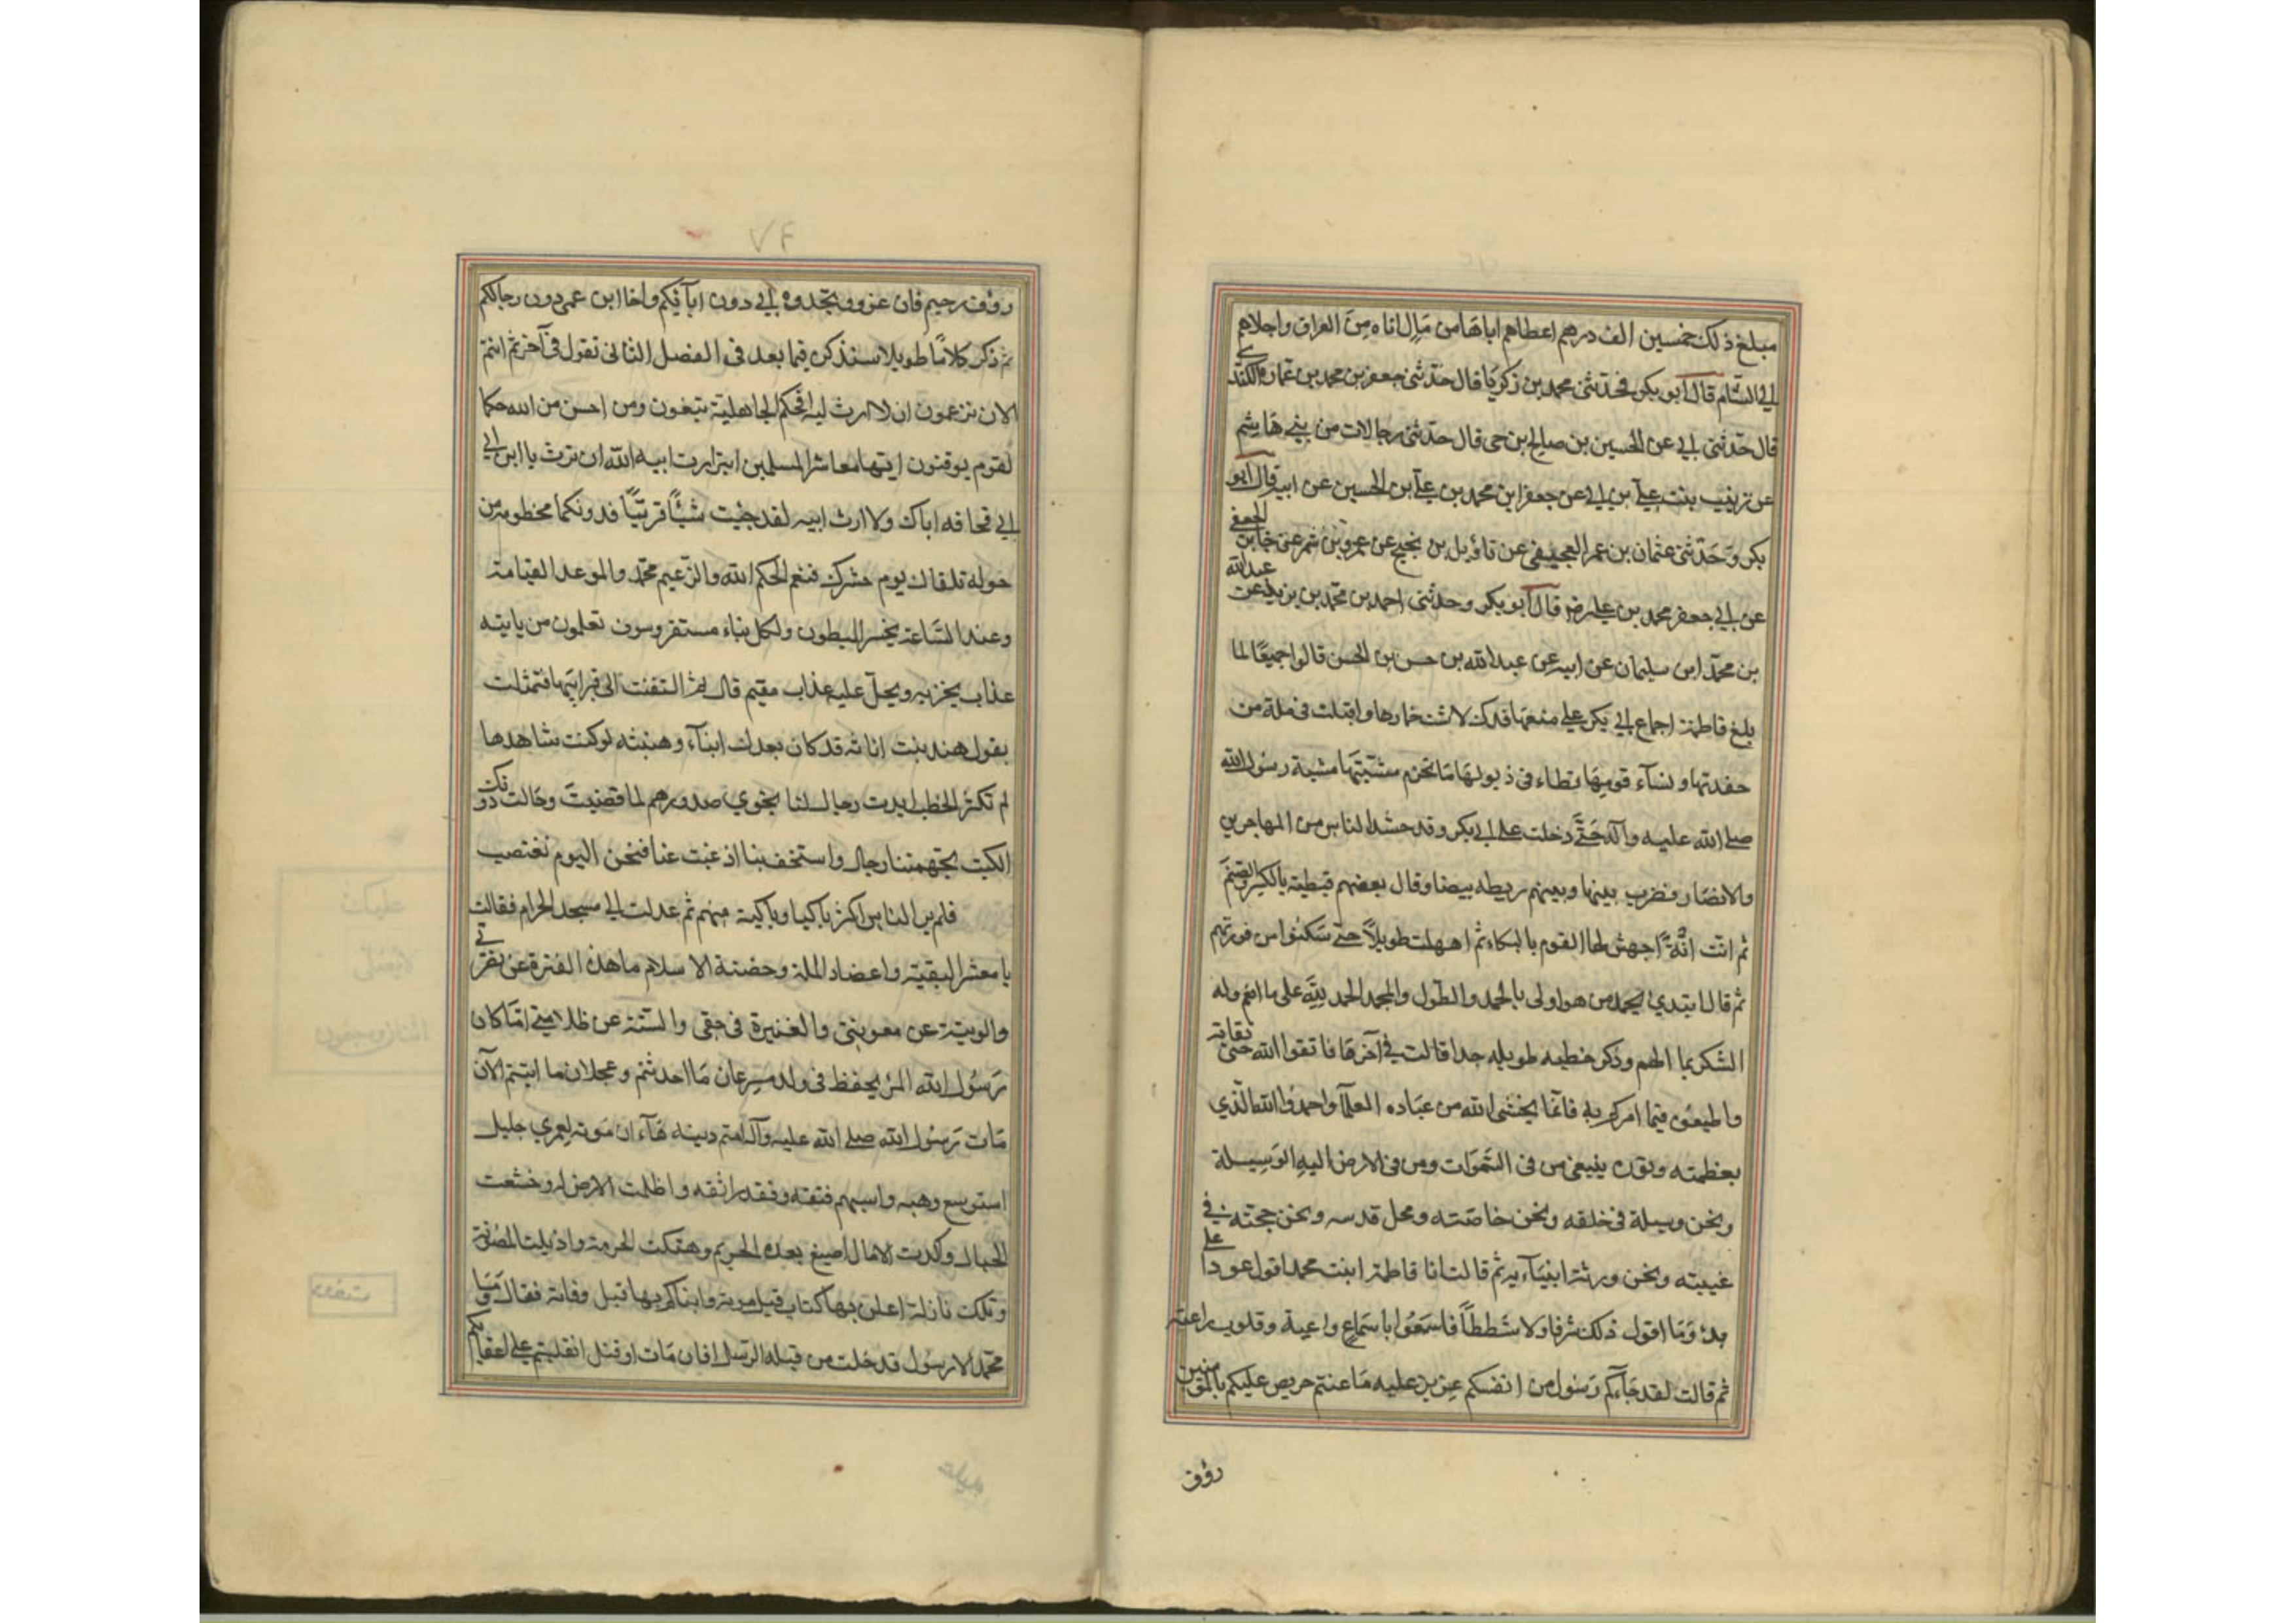 مبلغ ذلك خمسين الف درهم اعطاهم اياها من مال اتاه من العراق واجلاهم
الي الشام قال ابو بكر فحدثني محمد بن زكريا قال حدثني جعفر بن محمد بن عمارة الكندي
قال حدثني ابي عن الحسين بن صالح بن حي قال حدثني رجالات من بني هاشم
عن زينب بنت علي بن ابي عن جعفر ابن محمد بن علي بن الحسين عن ابيه قال ابو
بكر وحدثني عثمان بن عمر العجيفي عن نائل بن نجيح عن عمرو بن شمر عن جابر الجعفي
عن ابي جعفر محمد بن علي رض قال ابو بكر وحدثني احمد بن محمد بن يزيد عن عبد الله
بن محمد ابن سليمان عن ابيه عن عبد الله بن حسن بن الحسن قالوا جميعا لما
بلغ فاطمة اجماع ابي بكر علي منعها فدك لاثت خمارها واقبلت في ملة من
حفدتها ونساء قومها تطاء في ذيولها ما تخرم مشيتها مشية رسول الله
صلي الله عليه وآله حتي دخلت علي ابي بكر وقد حشد الناس من المهاجرين
والانصار فضرب بينها وبينهم ريطه بيضا وقال بعضهم قبطية بالكسر والضم
ثم انت انة اجهش لها القوم بالبكاء ثم امهلت طويلا حتي سكنوا من فورتهم
ثم قال ابتدي بحمد من هو اولى بالحمد والطول والمجد الحمد لله على ما انعم وله
الشكر بما الهم وذكر خطبه طويله جدا قالت في آخرها فاتقوا الله حق تقاته
واطيعوه فيما امركم به فانما يخشى الله من عباده العلمآ واحمدوا الله الذي
بعظمته ونوره يبتغي من في السموات ومن في الارض اليه الوسيلة
ونحن وسيلة في خلقه ونحن خاصته ومحل قدسه ونحن حجته في
غيبته ونحن ورثة انبيآءه ثم قالت انا فاطمة ابنت محمد اقول عودا علي
بدء وما اقول ذلك شرفا ولا شططا فاسمعوا باسماع واعية وقلوب راعية
ثم قالت لقد جآءكم رسول من انفسكم عزيز عليه ما عنتم حريص عليكم بالمؤمنين
رؤف
٦٧
رؤف رحيم فان عزوه تجدوه ابي دون ابآئكم واخا ابن عمي دون رجالكم
ثم ذكر كلاما طويلا سنذكره فيما بعد في الفصل الثاني تقول في آخره ثم انتم
الان تزعمون ان لا ارث ليه افحكم الجاهلية تبغون ومن احسن من الله حكما
لقوم يوقنون ايتها معاشر المسلمين ابتز ارث ابيه الله ان ترث يا ابن ابي
ابي قحافه اباك ولا ارث ابيه لقد جئت شيئا فريا فدونكما مخطومة من
حوله تلقاك يوم حشرك فنعم الحكم الله والزعيم محمد والموعد القيامة
وعند الساعة يخسر المبطون ولكل نباء مستقر وسوف تعلمون من ياتيه
عذاب يخزيه ويحل عليه عذاب مقيم قال ثم التفتت الى قبر ابيها فتمثلت
بقول هند بنت اثاثه قد كان بعدك ابنآء وهنبثه لو كنت شاهدها
لم تكثر الخطب ابدت رجال لنا نجوي صدورهم لما قضيت وحالت دونك
الكتب تجهمتنا رجال واستخف بنا اذ غبت عنا فنحن اليوم نغتصب
فلم ير الناس اكثر باكيا وباكية منهم ثم عدلت الي مسجد الحرام فقالت
يا معشر البقية واعضاد الملة وحضنة الاسلام ما هذه الفترة عن نصرتي
والونية عن معونتي والغميزة في حقي والسنة عن ظلامتي اما كان
رسول الله المرء يحفظ في ولده سرعان ما احدثتم وعجلان ما اتيتم الآن
مات رسول الله صلي الله عليه وآله امتم دينه هآء ان موته لعمري جليل
استوسع وهيه واستبهم فتقه وفقد راتقه واظلمت الارض له وخشعت
الجبال وكدت الامال اضيع بعده الحريم وهتكت الحرمة واذيلت المصونة
وتلك نازلة اعلن بها كتاب الله قبل موته وانباكم بها قبل وفاته فقال وما
محمد الا رسول قد خلت من قبله الرسل افان مات او قتل انقلبتم علي اعقابكم